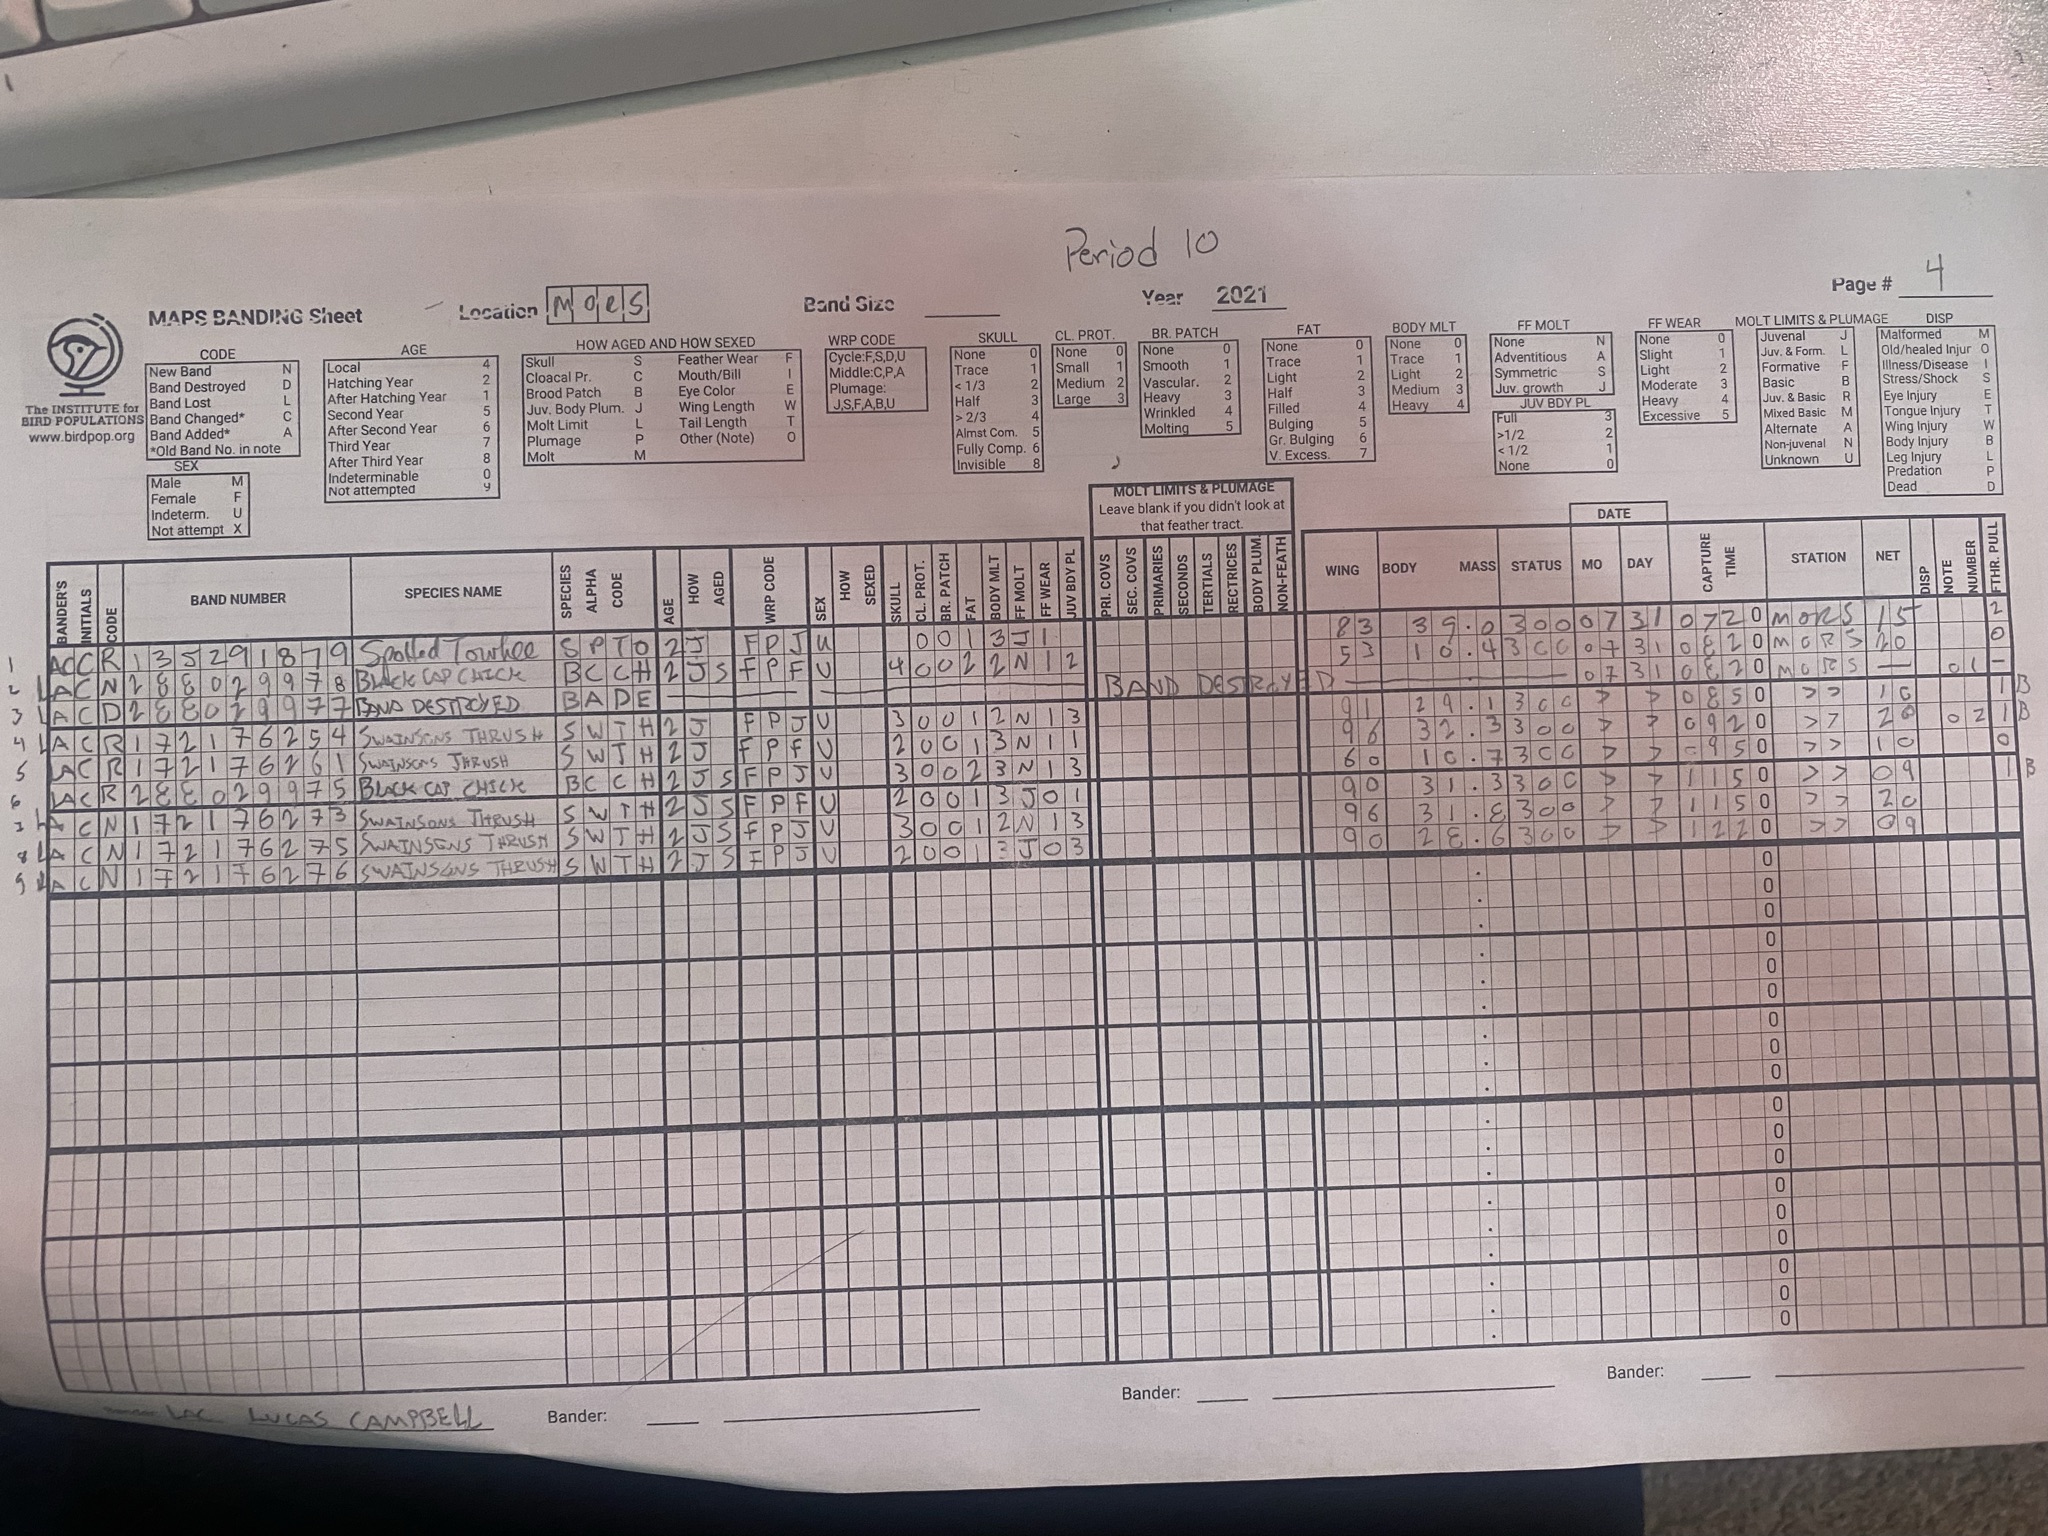 Period 10
Page # 4
MAPS BANDING Sheet Location MOES Band Size Year 2021
The INSTITUTE for
BIRD POPULATIONS
www.birdpop.org
CODE
New Band N
Band Destroyed D
Band Lost L
Band Changed* C
Band Added* A
*Old Band No. in note
SEX
Male M
Female F
Indeterm. U
Not attempt X
AGE
Local 4
Hatching Year 2
After Hatching Year 1
Second Year 5
After Second Year 6
Third Year 7
After Third Year 8
Indeterminable 0
Not attempted 9
HOW AGED AND HOW SEXED
Skull S Feather Wear F
Cloacal Pr. C Mouth/Bill I
Brood Patch B Eye Color E
Juv. Body Plum. J Wing Length W
Molt Limit L Tail Length T
Plumage P Other (Note) O
Molt M
WRP CODE
Cycle:F,S,D,U
Middle:C,P,A
Plumage:
J,S,F,A,B,U
SKULL
None 0
Trace 1
< 1/3 2
Half 3
> 2/3 4
Almst Com. 5
Fully Comp. 6
Invisible 8
CL. PROT.
None 0
Small 1
Medium 2
Large 3
BR. PATCH
None 0
Smooth 1
Vascular. 2
Heavy 3
Wrinkled 4
Molting 5
FAT
None 0
Trace 1
Light 2
Half 3
Filled 4
Bulging 5
Gr. Bulging 6
V. Excess. 7
BODY MLT
None 0
Trace 1
Light 2
Medium 3
Heavy 4
FF MOLT
None N
Adventitious A
Symmetric S
Juv. growth J
JUV BDY PL
Full 3
>1/2 2
< 1/2 1
None 0
FF WEAR
None 0
Slight 1
Light 2
Moderate 3
Heavy 4
Excessive 5
MOLT LIMITS & PLUMAGE
Juvenal J
Juv. & Form. L
Formative F
Basic B
Juv. & Basic R
Mixed Basic M
Alternate A
Non-juvenal N
Unknown U
DISP
Malformed M
Old/healed Injur O
Illness/Disease I
Stress/Shock S
Eye Injury E
Tongue Injury T
Wing Injury W
Body Injury B
Leg Injury L
Predation P
Dead D
MOLT LIMITS & PLUMAGE
Leave blank if you didn't look at
that feather tract.
DATE
BANDER'S INITIALS CODE BAND NUMBER SPECIES NAME SPECIES ALPHA CODE AGE HOW AGED WRP CODE SEX HOW SEXED SKULL CL. PROT. BR. PATCH FAT BODY MLT FF MOLT FF WEAR JUV BDY PL PRI. COVS SEC. COVS PRIMARIES SECONDS TERTIALS RECTRICES BODY PLUM. NON-FEATH WING BODY MASS STATUS MO DAY CAPTURE TIME STATION NET DISP NOTE NUMBER FTHR. PULL
1 ACC R 135291879 Spotted Towhee SPTO 2 J FPJ U 0 0 1 3 J 1 83 39.0 300 07 31 0720 MORS 15 2
2 LAC N 283029978 BLACK CAP CHICK BCCH 2 JS FPF U 4 0 0 2 2 N 1 2 53 10.4 300 07 31 0820 MORS 20 0
3 LAC D 283029977 BAND DESTROYED BADE BAND DESTROYED 07 31 0820 MORS — 01 –
4 LAC R 172176254 SWAINSONS THRUSH SWTH 2 J FPJ U 3 0 0 1 2 N 1 3 91 29.1 300 > > 0850 >> 10 1 B
5 LAC R 172176261 SWAINSONS THRUSH SWTH 2 J FPF U 2 0 0 1 3 N 1 1 96 32.3 300 > > 0920 >> 20 02 1 B
6 LAC R 283029975 BLACK CAP CHICK BCCH 2 JS FPJ U 3 0 0 2 3 N 1 3 60 10.7 300 > > 0950 >> 10 0
7 LAC N 172176273 SWAINSONS THRUSH SWTH 2 JS FPF U 2 0 0 1 3 J 0 1 90 31.3 300 > > 1150 >> 09 1 B
8 LAC N 172176275 SWAINSONS THRUSH SWTH 2 JS FPJ U 3 0 0 1 2 N 1 3 96 31.8 300 > > 1150 >> 20
9 LAC N 172176276 SWAINSONS THRUSH SWTH 2 JS FPJ U 2 0 0 1 3 J 0 3 90 28.6 300 > > 1220 >> 09
0
0
0
0
0
0
0
0
0
0
0
0
0
0
0
0
0
0
LAC LUCAS CAMPBELL Bander: Bander: Bander: